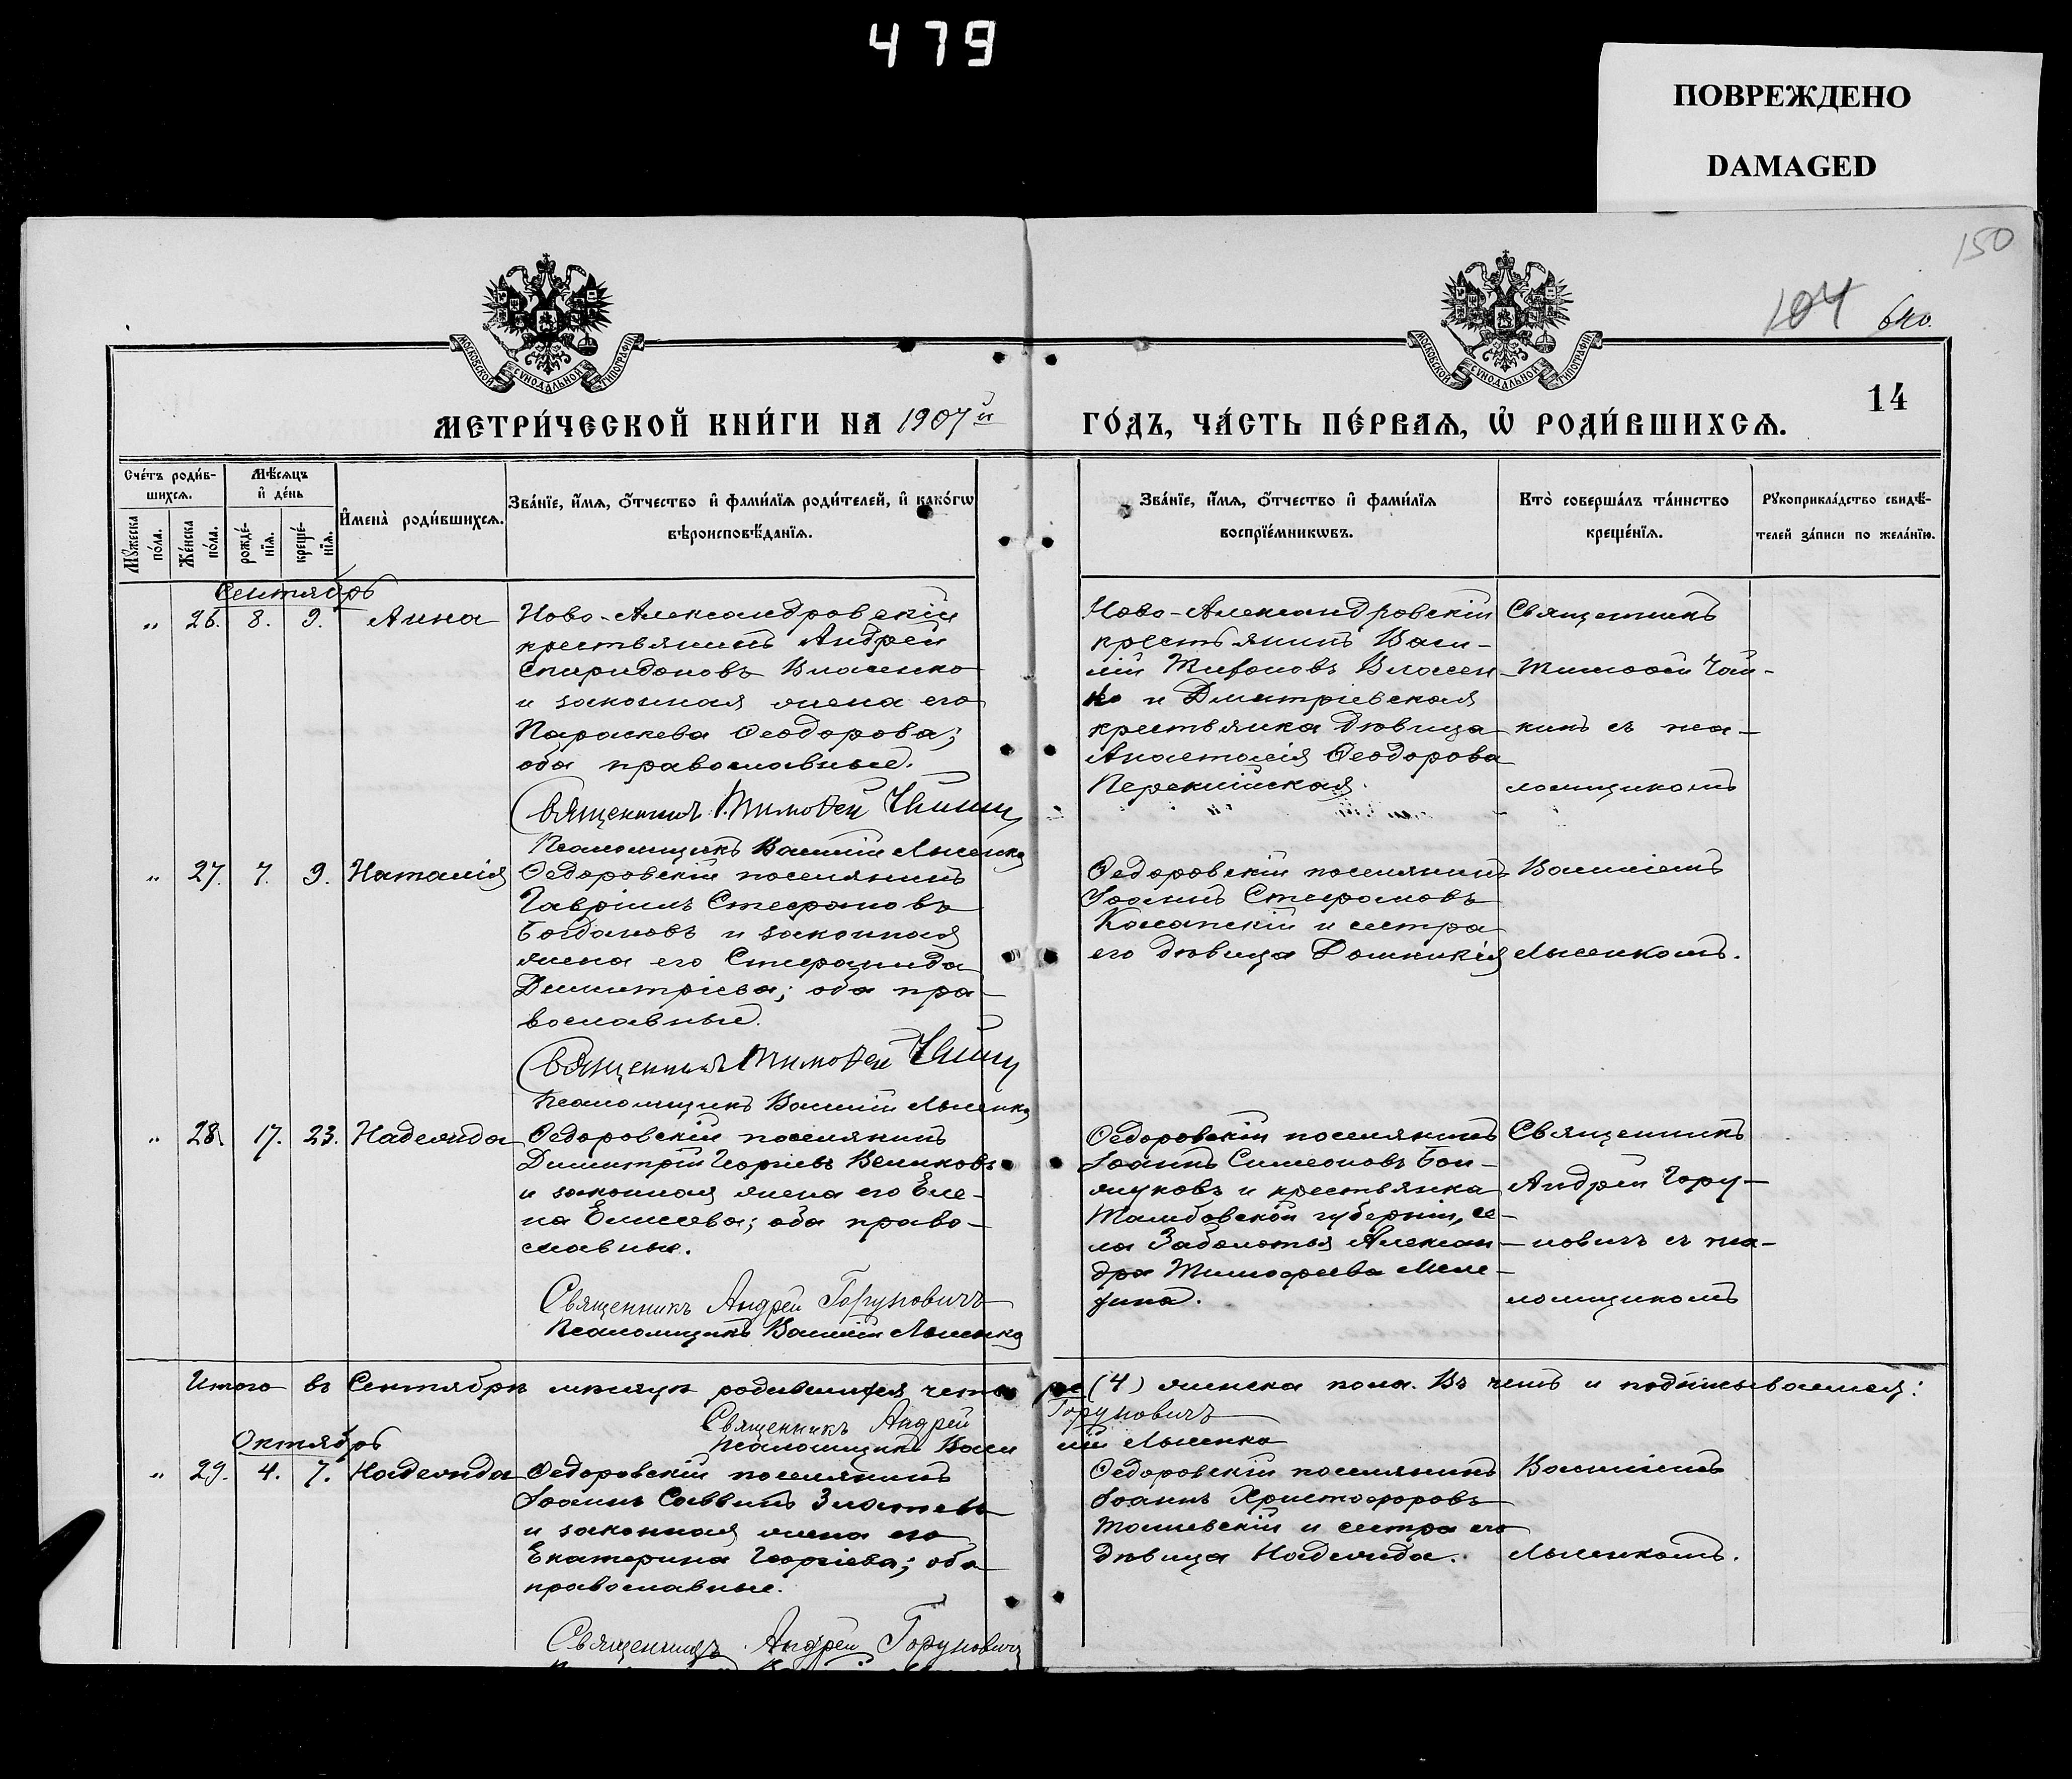 479
ПОВРЕЖДЕНО
DAMAGED
150
104
640.
МОСКОВСКОЙ СѴНОДАЛЬНОЙ ТИПОГРАФІИ
МОСКОВСКОЙ СѴНОДАЛЬНОЙ ТИПОГРАФІИ
14
МЕТРИ́ЧЕСКОЙ КНИ́ГИ НА 1907й
ГО́ДЪ, ЧА́СТЬ ПЕ́РВАѦ, Ѡ҆ РОДИ́ВШИХСѦ.
Сче́тъ роди́в-
шихсѧ.
Мꙋ́жеска по́ла.
Же́нска по́ла.
Мѣ́сѧцъ
и҆ де́нь
рожде́-
нїѧ.
креще́-
нїѧ.
И҆мена̀ роди́вшихсѧ.
Зва́нїе, и҆́мѧ, ѻ҆́тчество и҆ фами́лїѧ роди́телей, и҆ како́гѡ
вѣроисповѣ́данїѧ.
Зва́нїе, и҆́мѧ, ѻ҆́тчество и҆ фами́лїѧ
воспрїе́мникѡвъ.
Кто̀ соверша́лъ та́инство
креще́нїѧ.
Рꙋкоприкла́дство свидѣ́-
телей за́писи по жела́нїю.
Сентябрь
„ 26. 8. 9. Анна
Ново-Александровскій
крестьянинъ Андрей
Спиридоновъ Власенко
и законная жена его
Параскева Ѳеодорова;
оба православные.
Священникъ Тимоѳей Чайкин
Псаломщикъ Василій Лысенко
Ново-Александровскій
крестьянинъ Васи-
лій Тифоновъ Власен
ко и Дмитріевская
крестьянка дѣвица
Анастасія Ѳеодорова
Священникъ
Тимоѳей Чай-
кинъ съ пса-
ломщикомъ
„ 27. 7. 9. Наталія
Ѳедоровскій поселянинъ
Гавріилъ Стефановъ
Богдановъ и законная
жена его Стефанида
Димитріева; оба пра-
вославные.
Священникъ Тимоѳей Чайкин
Псаломщикъ Василій Лысенко
Ѳедоровскій поселянинъ
Іоаннъ Стефановъ
и сестра
его дѣвица Домникія
Василіемъ
Лысенкомъ.
„ 28. 17. 23. Надежда
Ѳедоровскій поселянинъ
Димитрій Георгіевъ Великовъ
и законная жена его Еле-
на Елисеева; оба право-
славные.
Священникъ Андрей Горуновичъ
Псаломщикъ Василій Лысенко
Ѳедоровскій поселянинъ
Іоаннъ Симеоновъ Бол-
жуковъ и крестьянка
Тамбовской губерніи, се-
ла Заболотья Алексан-
дра Тимофеева Меле-
Священникъ
Андрей Гору-
новичъ съ пса-
ломщикомъ
Итого въ Сентябрѣ мѣсяцѣ родившихся четы ре (4) женска пола. Въ чемъ и подписываемся:
Священникъ Андрей Горуновичъ
Псаломщикъ Васи лій Лысенко
Октябрь
„ 29. 4. 7. Надежда
Ѳедоровскій поселянинъ
Іоаннъ Саввинъ Златевъ
и законная жена его
Екатерина Георгіева; оба
православные.
Священникъ Андрей Горуновичъ
Ѳедоровскій поселянинъ
Іоаннъ Христофоровъ
Толиевскій и сестра его
дѣвица Надежда.
Василіемъ
Лысенкомъ.